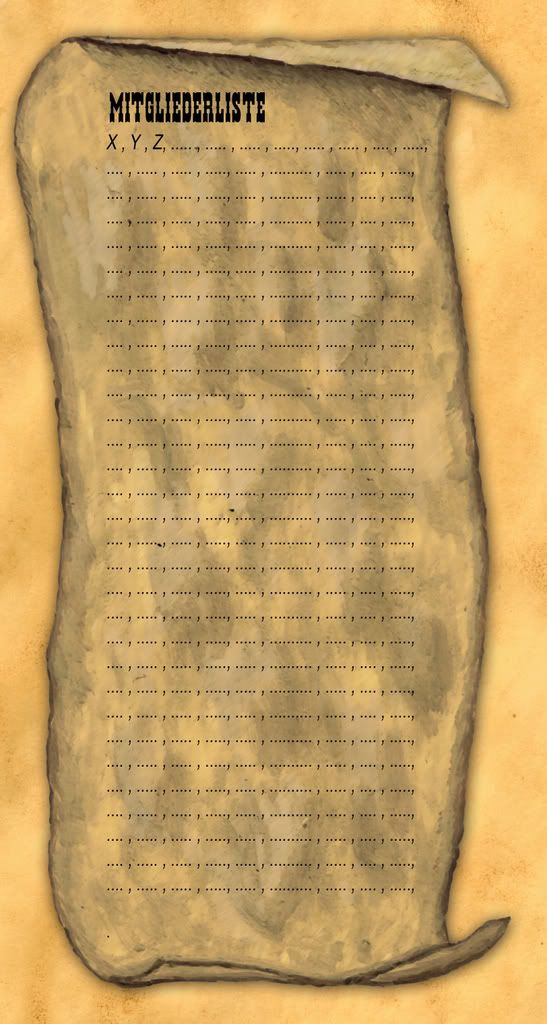 MITGLIEDERLISTE
X , Y , Z, ..... , ..... , ..... , ....., ..... , ..... , .... , .....,
.... , ..... , ..... , ....., .... , .......... , ..... , .... , .....,
.... , ..... , ..... , ....., .... , .......... , ..... , .... , .....,
.... , ..... , ..... , ....., .... , .......... , ..... , .... , .....,
.... , ..... , ..... , ....., .... , .......... , ..... , .... , .....,
.... , ..... , ..... , ....., .... , .......... , ..... , .... , .....,
.... , ..... , ..... , ....., .... , .......... , ..... , .... , .....,
.... , ..... , ..... , ....., .... , .......... , ..... , .... , .....,
.... , ..... , ..... , ....., .... , .......... , ..... , .... , .....,
.... , ..... , ..... , ....., .... , .......... , ..... , .... , .....,
.... , ..... , ..... , ....., .... , .......... , ..... , .... , .....,
.... , ..... , ..... , ....., .... , .......... , ..... , .... , .....,
.... , ..... , ..... , ....., .... , .......... , ..... , .... , .....,
.... , ..... , ..... , ....., .... , .......... , ..... , .... , .....,
.... , ..... , ..... , ....., .... , .......... , ..... , .... , .....,
.... , ..... , ..... , ....., .... , .......... , ..... , .... , .....,
.... , ..... , ..... , ....., .... , .......... , ..... , .... , .....,
.... , ..... , ..... , ....., .... , .......... , ..... , .... , .....,
.... , ..... , ..... , ....., .... , .......... , ..... , .... , .....,
.... , ..... , ..... , ....., .... , .......... , ..... , .... , .....,
.... , ..... , ..... , ....., .... , .......... , ..... , .... , .....,
.... , ..... , ..... , ....., .... , .......... , ..... , .... , .....,
.... , ..... , ..... , ....., .... , .......... , ..... , .... , .....,
.... , ..... , ..... , ....., .... , .......... , ..... , .... , .....,
.... , ..... , ..... , ....., .... , .......... , ..... , .... , .....,
.... , ..... , ..... , ....., .... , .......... , ..... , .... , .....,
.... , ..... , ..... , ....., .... , .......... , ..... , .... , .....,
.... , ..... , ..... , ....., .... , .......... , ..... , .... , .....,
.... , ..... , ..... , ....., .... , .......... , ..... , .... , .....,
.... , ..... , ..... , ....., .... , .......... , ..... , .... , .....,
.... , ..... , ..... , ....., .... , .......... , ..... , .... , .....,
.